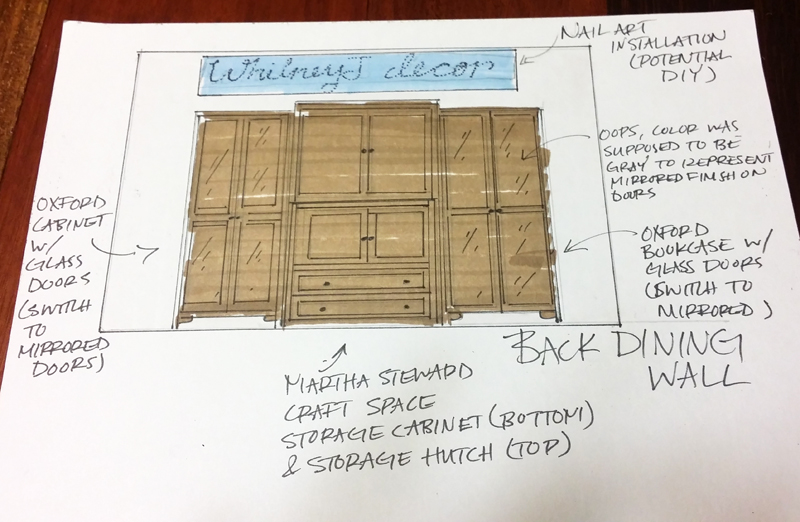 Whitney's decor
NAIL ART
INSTALLATION
(POTENTIAL
DIY)
OOPS, COLOR WAS
SUPPOSED TO BE
GRAY TO REPRESENT
MIRRORED FINISH ON
DOORS
OXFORD
CABINET
W/
GLASS
DOORS
(SWITCH
TO
MIRRORED
DOORS)
OXFORD
BOOKCASE W/
GLASS DOORS
(SWITCH TO
MIRRORED)
BACK DINING
WALL
MARTHA STEWARD
CRAFT SPACE
STORAGE CABINET (BOTTOM)
& STORAGE HUTCH (TOP)